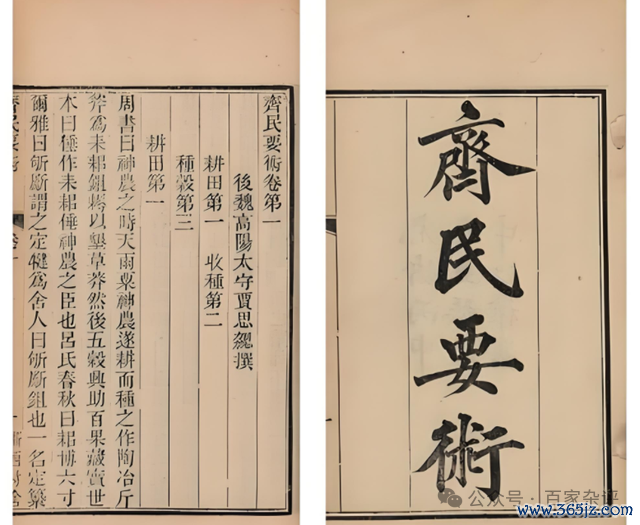 齊民要術
齊民要術卷第一
後魏高陽太守賈思勰撰
耕田第一　收種第二
種穀第三
耕田第一
周書曰神農之時天雨粟神農遂耕而種之作陶冶斤
斧爲耒耜鉏耨以墾草莽然後五穀興助百果藏實世
本曰倕作耒耜倕神農之臣也呂氏春秋曰耜博六寸
爾雅曰斪斸謂之定犍爲舍人曰斪斸鉏也一名定纂
公众号 · 百家杂评
www.365jz.com